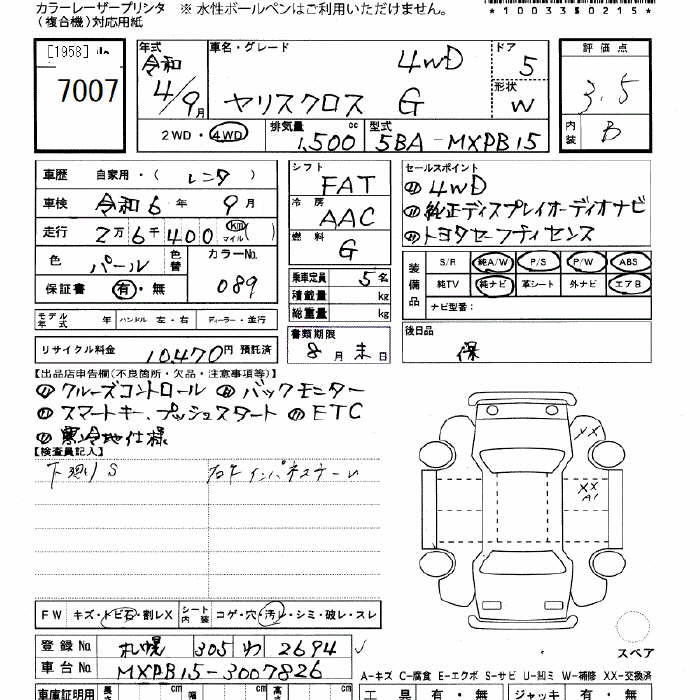 カラーレーザープリンタ ※ 水性ボールペンはご利用いただけません。
(複合機)対応用紙
*1003350215*
[1958]
7007
年式 車名・グレード ドア 評価点
令和 4WD 5 3.5
4/9月 ヤリスクロス G 形状 W
2WD・4WD 排気量 1,500 cc 型式 5BA-MXPB15 内装 B
車歴 自家用・( レンタ ) シフト FAT セールスポイント
車検 令和6年 9月 冷房 AAC (1) 4WD
走行 2万6千400 km マイル ( ) 燃料 G (2) 純正ディスプレイオーディオナビ
(3) トヨタセーフティセンス
色 パール 色替 カラーNo. 089 乗車定員 5名
保証書 有・無 積載量 kg
総重量 kg
装備品 S/R 純A/W P/S P/W ABS
純TV 純ナビ 革シート 外ナビ エアB
ナビ型番:
モデル年式 年 ハンドル 左・右 ディーラー・並行 書類期限 8月末日 後日品 保
リサイクル料金 10,470円 預託済
【出品店申告欄(不良箇所・欠品・注意事項等)】
クルーズコントロール バックモニター
スマートキー、プッシュスタート ETC
寒冷地仕様
【検査員記入】
下廻りS
XX
XX
A1
FW キズ・トビ石・割レX シート内装 コゲ・穴・汚レ・シミ・破レ・スレ
スペア
登録No 札幌 305 わ 2694
車台No MXPB15-3007826
A-キズ C-腐食 E-エクボ S-サビ U-凹ミ W-補修 XX-交換済
車庫証明用 長さ cm 幅 cm 高さ cm 工具 有・無 ジャッキ 有・無